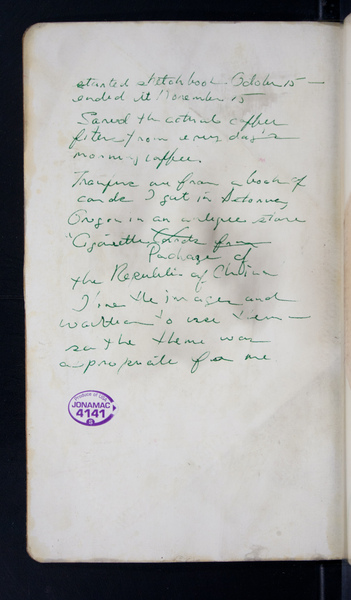 started sketchbook October 15 —
ended it November 15
Saved the actual coffee
filters from every day's
morning coffee.
Transfers are from a book of
cards I got in Astoria,
Oregon in an antique store
"Cigarette Cards from
Package of
the Republic of China
I love the images and
wanted to use them —
so the theme was
appropriate for me
Produce of USA
JONAMAC
4141